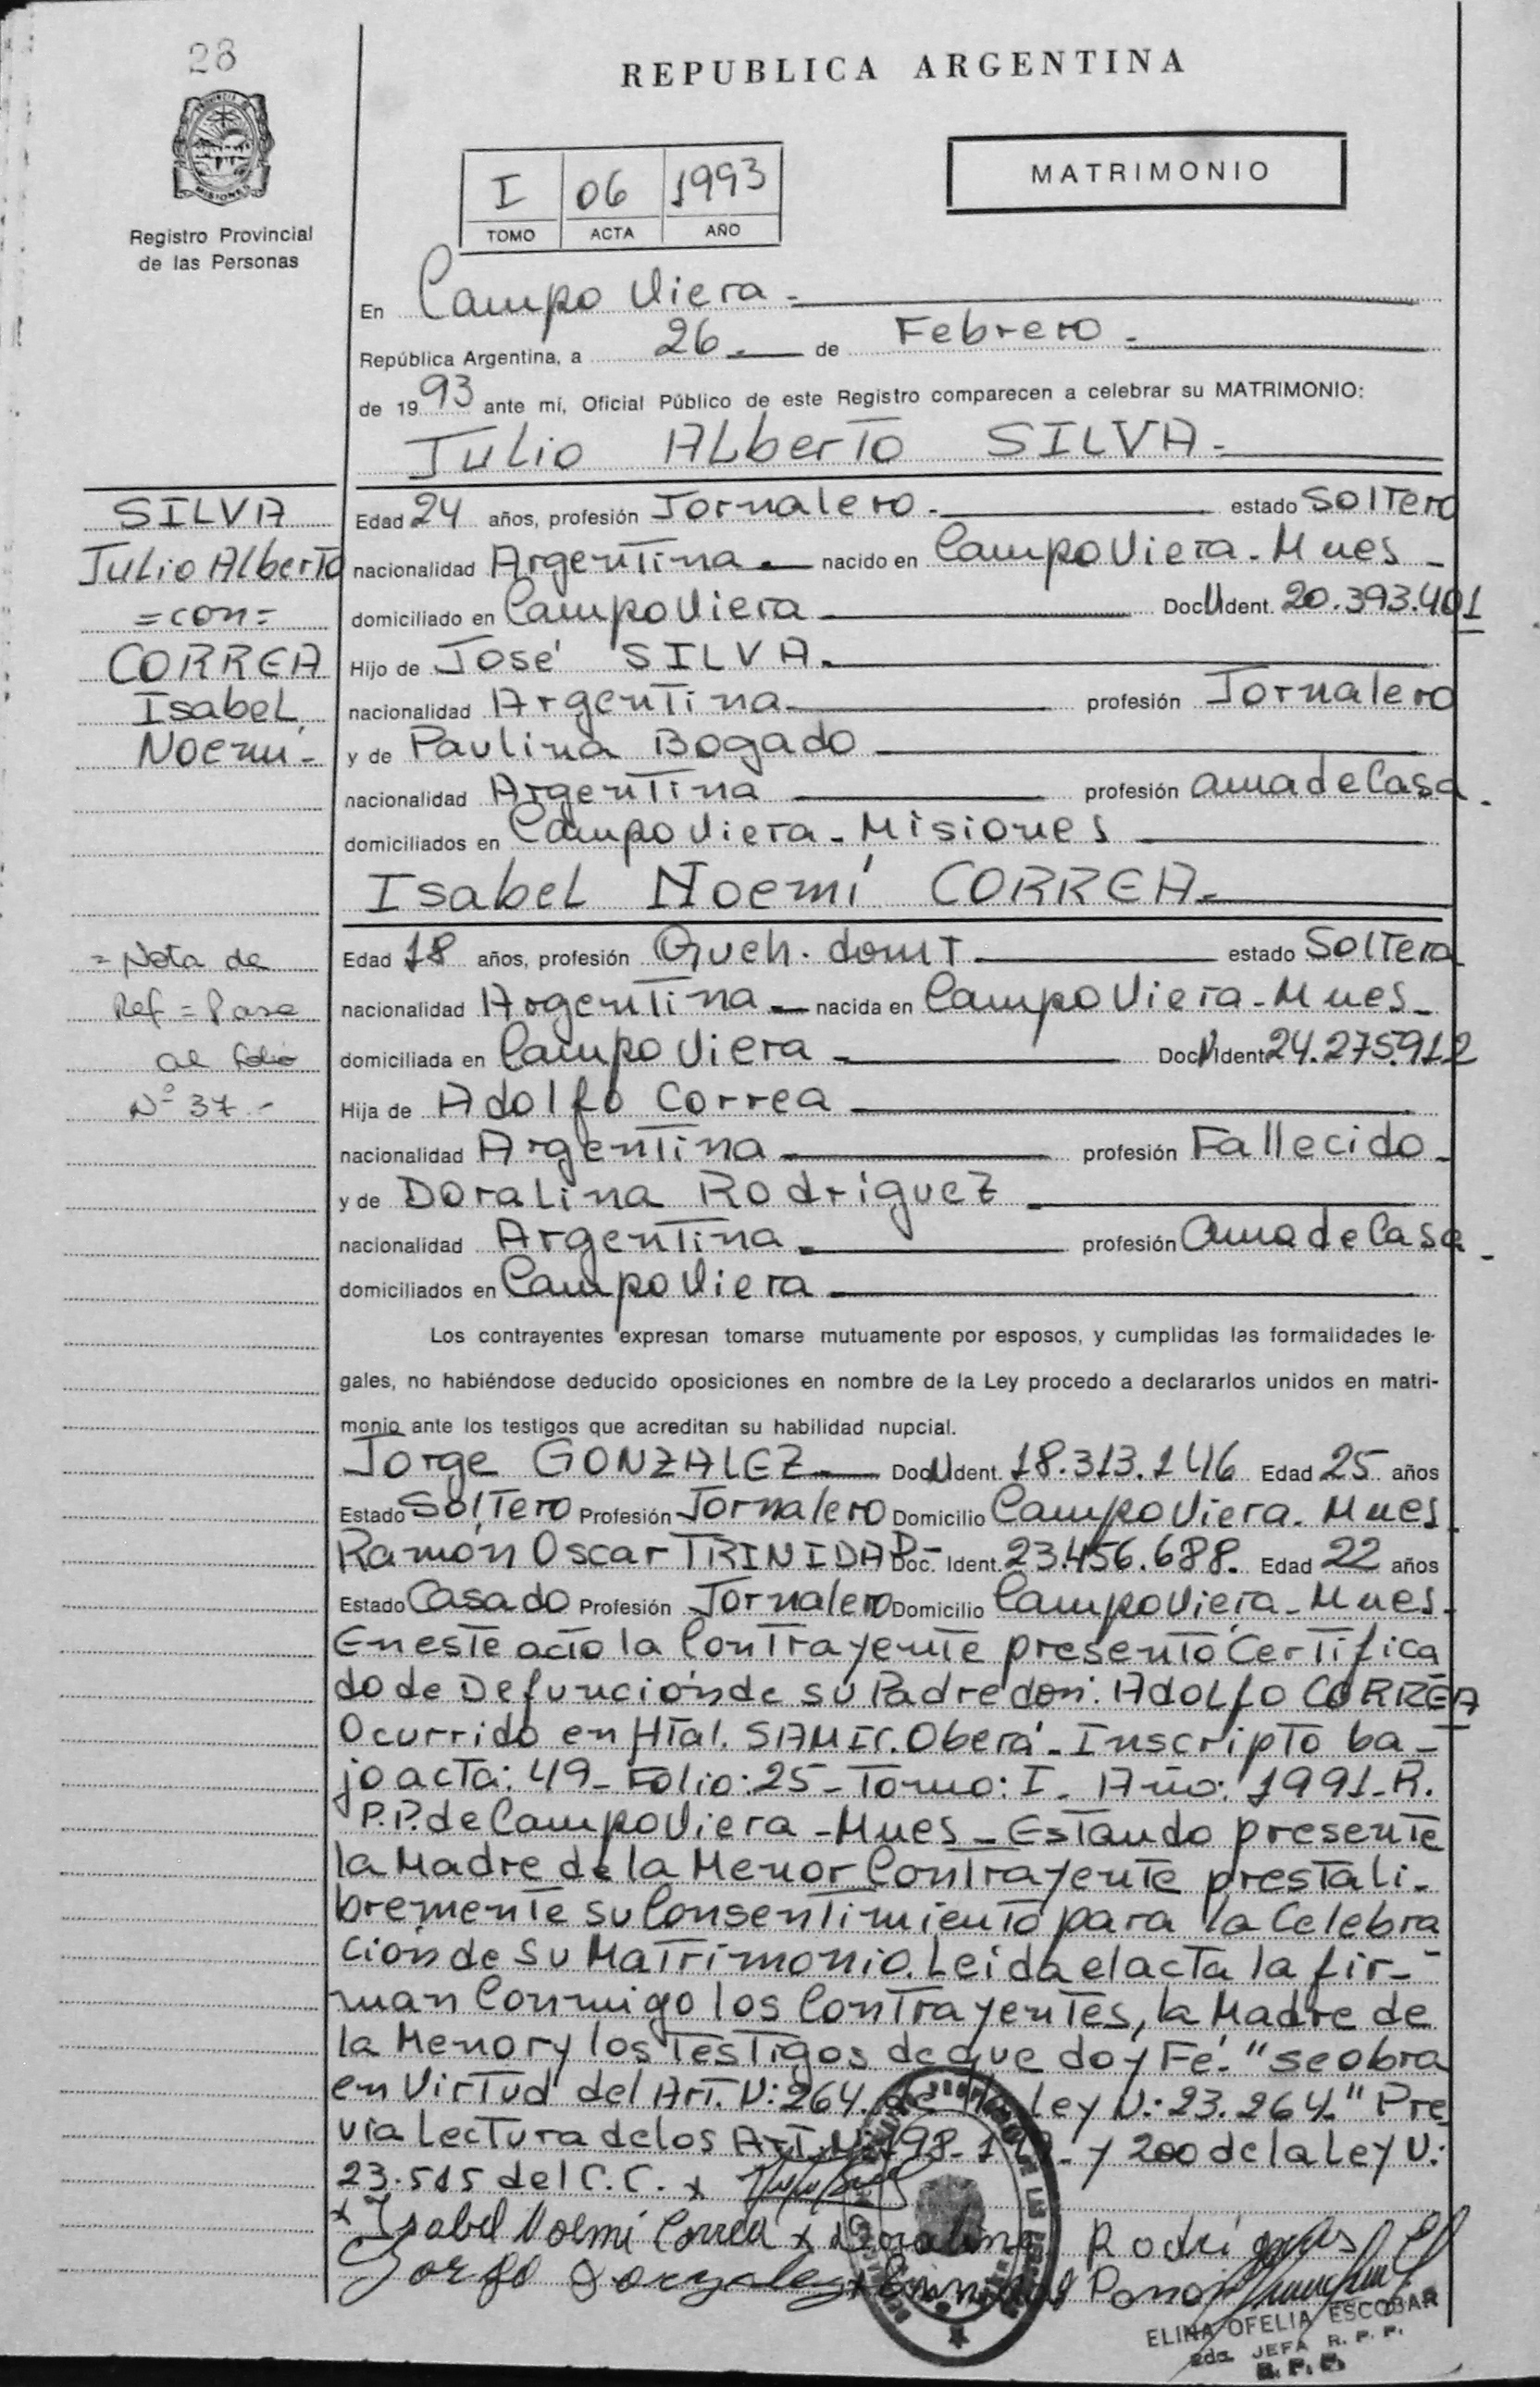 28
REPUBLICA ARGENTINA
MATRIMONIO
I 06 1993
TOMO ACTA AÑO
PROVINCIA DE
MISIONES
Registro Provincial
de las Personas
En Campo Viera.
República Argentina, a 26. de Febrero.
de 1993 ante mí, Oficial Público de este Registro comparecen a celebrar su MATRIMONIO:
Julio Alberto SILVA.
SILVA
Julio Alberto
=con=
CORREA
Isabel
Noemi.
Edad 24 años, profesión Jornalero. estado Soltero
nacionalidad Argentina. nacido en Campo Viera. Mnes.
domiciliado en Campo Viera Doc. N Ident. 20.393.401
Hijo de José SILVA.
nacionalidad Argentina. profesión Jornalero
y de Paulina Bogado
nacionalidad Argentina profesión ama de Casa.
domiciliados en Campo Viera. Misiones
Isabel Noemí CORREA.
= Nota de
Ref = Pase
al folio
Nº 37.-
Edad 18 años, profesión Queh. domt. estado Soltera
nacionalidad Argentina. nacida en Campo Viera. Mnes.
domiciliada en Campo Viera. Doc. N Ident. 24.275.912
Hija de Adolfo Correa
nacionalidad Argentina. profesión Fallecido.
y de Doralina Rodriguez
nacionalidad Argentina. profesión ama de Casa.
domiciliados en Campo Viera.
Los contrayentes expresan tomarse mutuamente por esposos, y cumplidas las formalidades le-
gales, no habiéndose deducido oposiciones en nombre de la Ley procedo a declararlos unidos en matri-
monio ante los testigos que acreditan su habilidad nupcial.
Jorge GONZALEZ. Doc. N Ident. 18.313.146 Edad 25 años
Estado Soltero Profesión Jornalero Domicilio Campo Viera. Mnes.
Ramón Oscar TRINIDAD- Doc. Ident. 23.456.688. Edad 22 años
Estado Casado Profesión Jornalero Domicilio Campo Viera. Mnes.
En este acto la Contrayente presentó Certifica
do de Defunción de su Padre don: Adolfo CORREA
Ocurrido en Htal. SAMIC. Oberá. Inscripto ba-
jo acta: 49- Folio: 25- Tomo: I. Año: 1991. R.
P.P. de Campo Viera - Mnes - Estando presente
la Madre de la Menor Contrayente presta li-
bremente su Consentimiento para la Celebra
ción de Su Matrimonio. Leida el acta la fir-
man Conmigo los Contrayentes, la Madre de
la Menor y los Testigos de que doy Fé. "se obra
en Virtud del Art. N: 264. de la Ley N: 23.264." Pre
via Lectura de los Art. N: 198- 199- y 200 de la Ley N:
23.515 del C.C. x
x Isabel Noemí Correa x Doralina Rodrigues
Jorge Gonzalez x
ELINA OFELIA ESCOBAR
2da. JEFA R. P. P.
R. P. P.